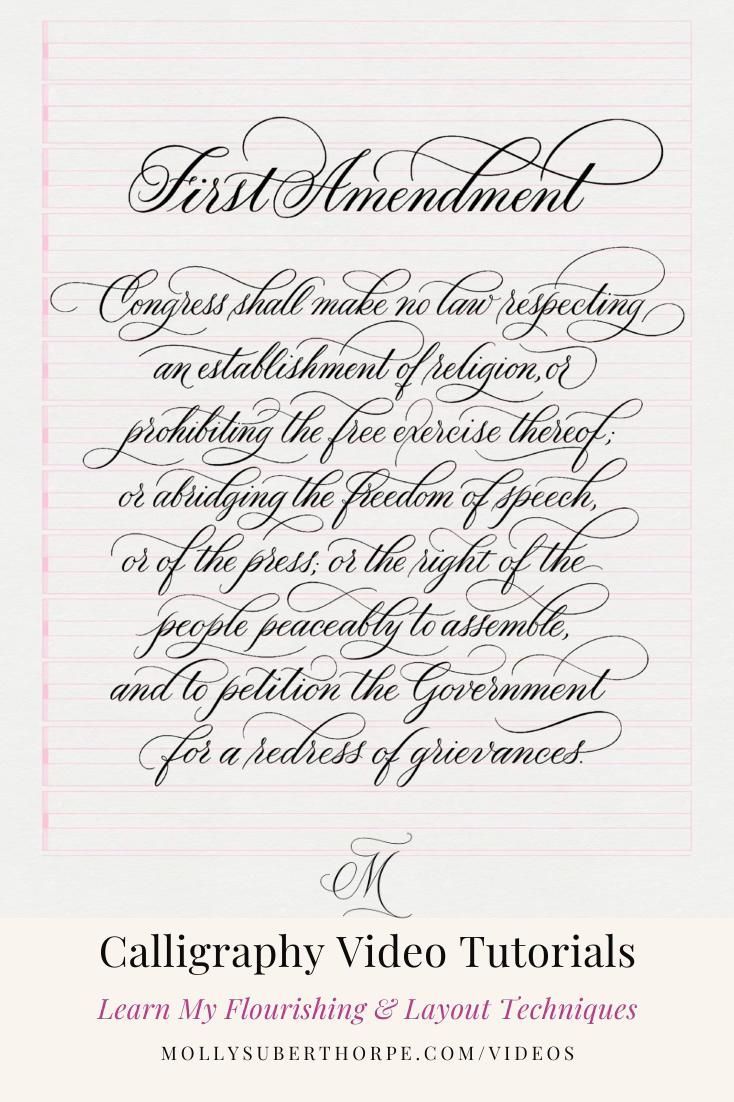 First Amendment
Congress shall make no law respecting
an establishment of religion, or
prohibiting the free exercise thereof;
or abridging the freedom of speech,
or of the press; or the right of the
people peaceably to assemble,
and to petition the Government
for a redress of grievances.
M
Calligraphy Video Tutorials
Learn My Flourishing & Layout Techniques
MOLLYSUBERTHORPE.COM/VIDEOS